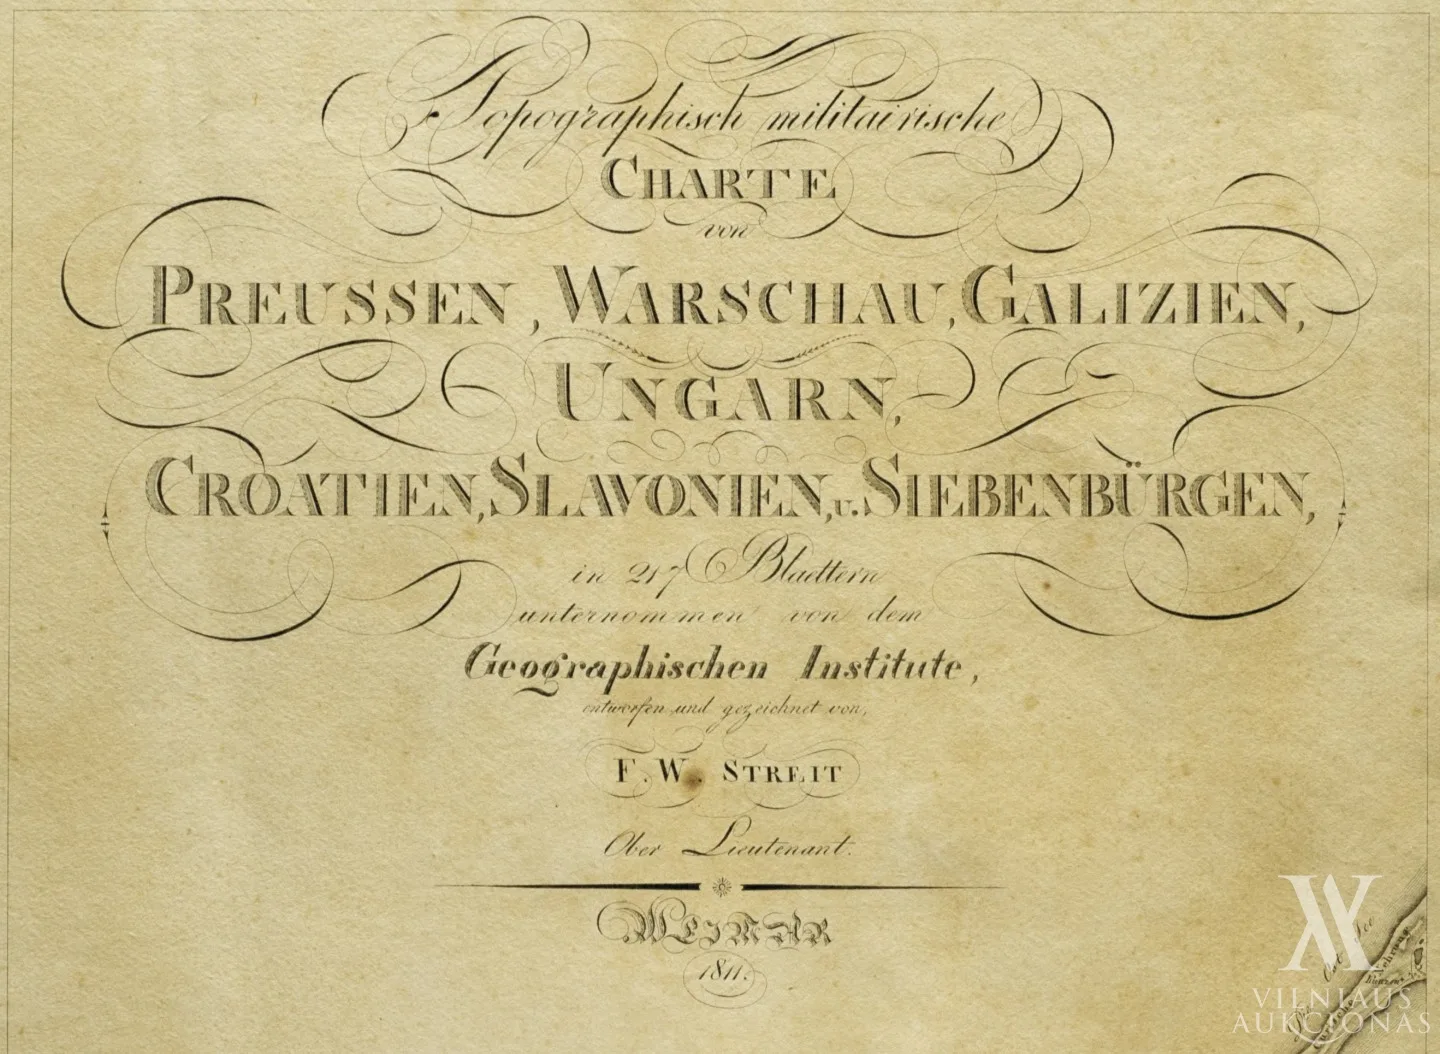 Topographisch militairische
CHARTE
von
PREUSSEN, WARSCHAU, GALIZIEN,
UNGARN,
CROATIEN, SLAVONIEN, u. SIEBENBÜRGEN,
in 217 Blaettern
unternommen von dem
Geographischen Institute,
entworfen und gezeichnet von,
F. W. STREIT
Ober Lieutenant.
WEIMAR
1811.
Ost See
Nehrung
VILNIAUS
AUKCIONAS